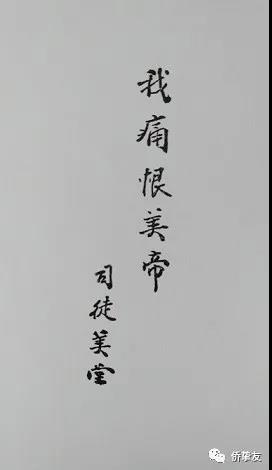 我痛恨美帝
司徒美堂
侨挚友